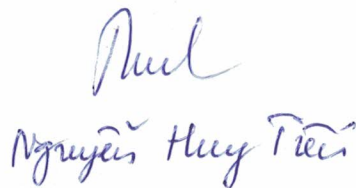 Nguyễn Huy Tiến